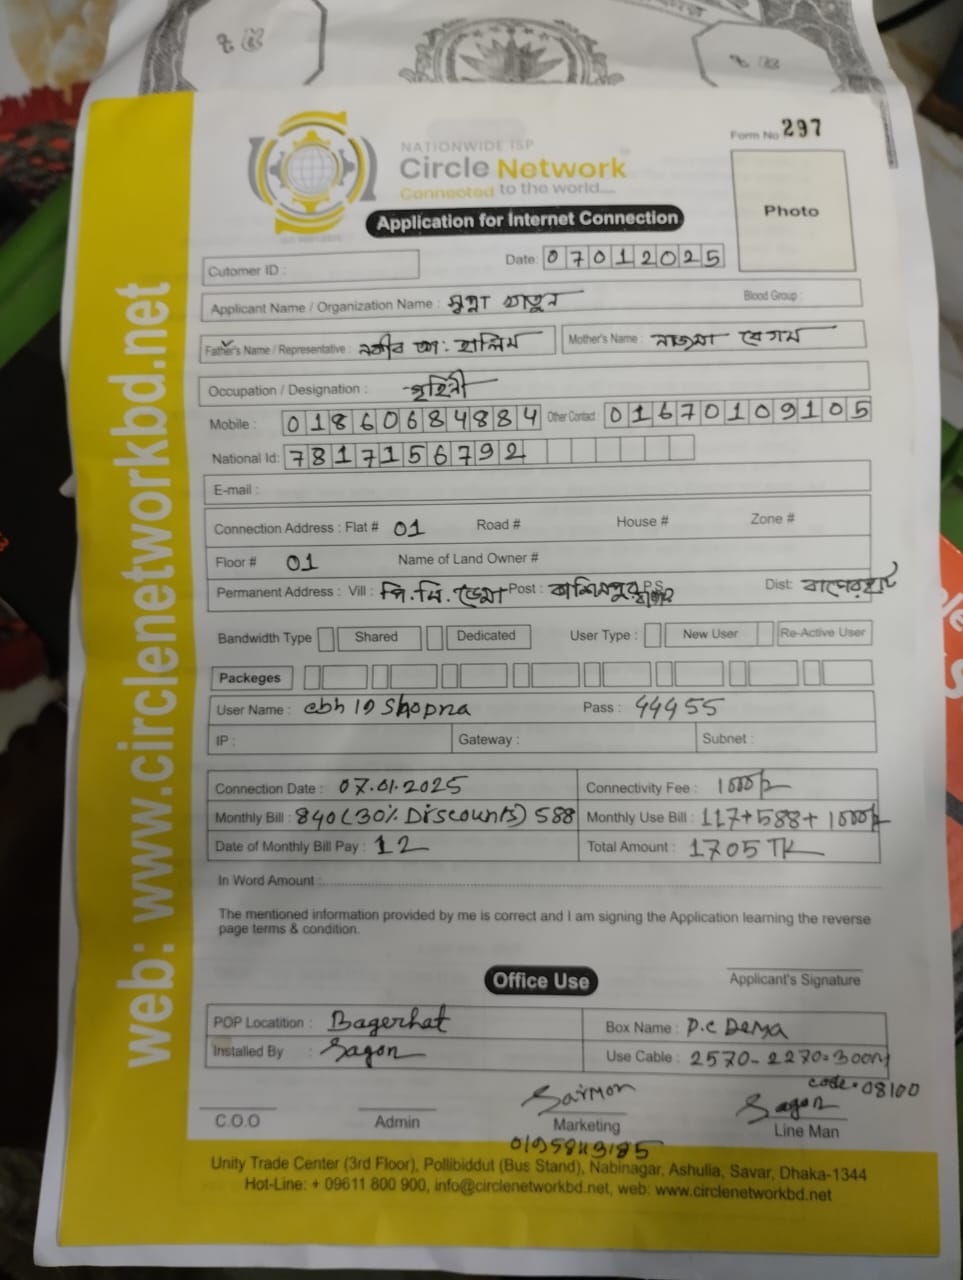 NATIONWIDE ISP
Circle Network
Connected to the world....
Form No 297
Photo
Application for Internet Connection
Cutomer ID :
Date: 07012025
Applicant Name / Organization Name :
Blood Group :
Father's Name / Representative : নকীব আ: হালিম
Mother's Name : নাজমা বেগম
Occupation / Designation : গৃহিনী
Mobile : 01860684884
Other Contact : 01670109105
National Id: 7817156792
E-mail :
Connection Address : Flat # 01 Road # House # Zone #
Floor # 01 Name of Land Owner #
Permanent Address : Vill : পি.সি. ডেমা Post : কাশিমপুর P.S Dist: বাগেরহাট
Bandwidth Type Shared Dedicated User Type : New User Re-Active User
Packeges
User Name : cbh 19 Shopna Pass : 44455
IP : Gateway : Subnet :
Connection Date : 07.01.2025 Connectivity Fee : 1000/-
Monthly Bill : 840 (30% Discounts) 588 Monthly Use Bill : 117+588+1000/-
Date of Monthly Bill Pay : 12 Total Amount : 1705 TK
In Word Amount :
The mentioned information provided by me is correct and I am signing the Application learning the reverse
page terms & condition.
Applicant's Signature
Office Use
POP Locatition : Bagerhat Box Name : P.C Dema
Installed By : Sagor Use Cable : 2570-2270=300M
code. 08100
Saimon
Sagor
C.O.O Admin Marketing Line Man
Unity Trade Center (3rd Floor), Pollibiddut (Bus Stand), Nabinagar, Ashulia, Savar, Dhaka-1344
Hot-Line: + 09611 800 900, info@circlenetworkbd.net, web: www.circlenetworkbd.net
web: www.circlenetworkbd.net